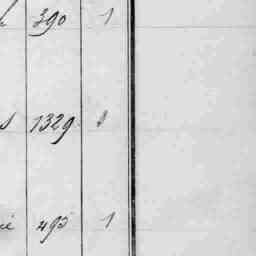 390 1
s 1329 1
ié 495 1